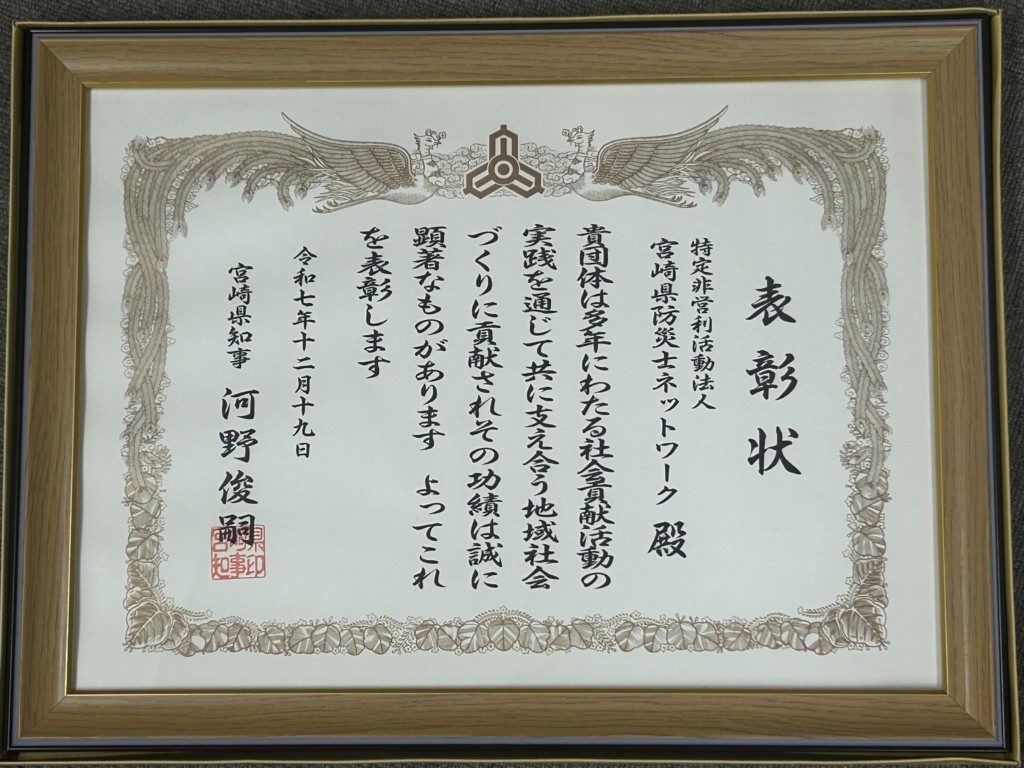 表彰状
特定非営利活動法人
宮崎県防災士ネットワーク 殿
貴団体は多年にわたる社会貢献活動の
実践を通じて共に支え合う地域社会
づくりに貢献されその功績は誠に
顕著なものがあります よってこれ
を表彰します
令和七年十二月十九日
宮崎県知事 河野俊嗣